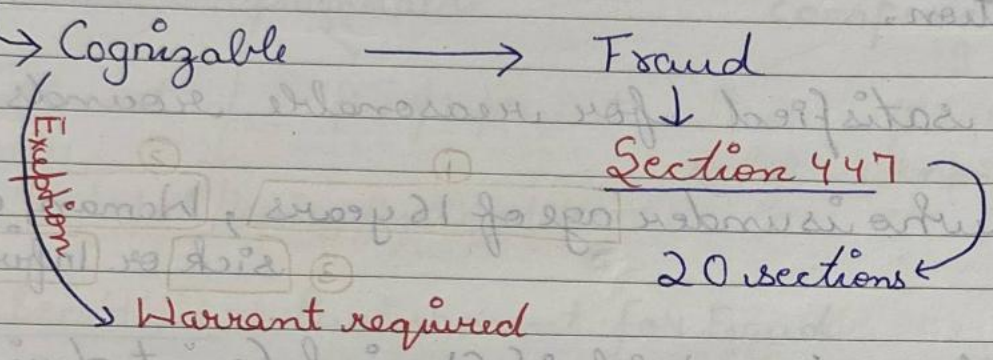 → Cognizable → Fraud
↓
Section 447
Exception
20 sections
Warrant required